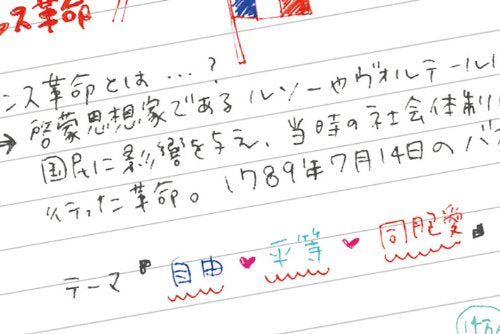 ス革命
ンス革命とは…?
→ 啓蒙思想家であるルソーやヴォルテール
国民に影響を与え、当時の社会体制
行った革命。1789年7月14日のバ
テーマ 自由♥平等♥同胞愛